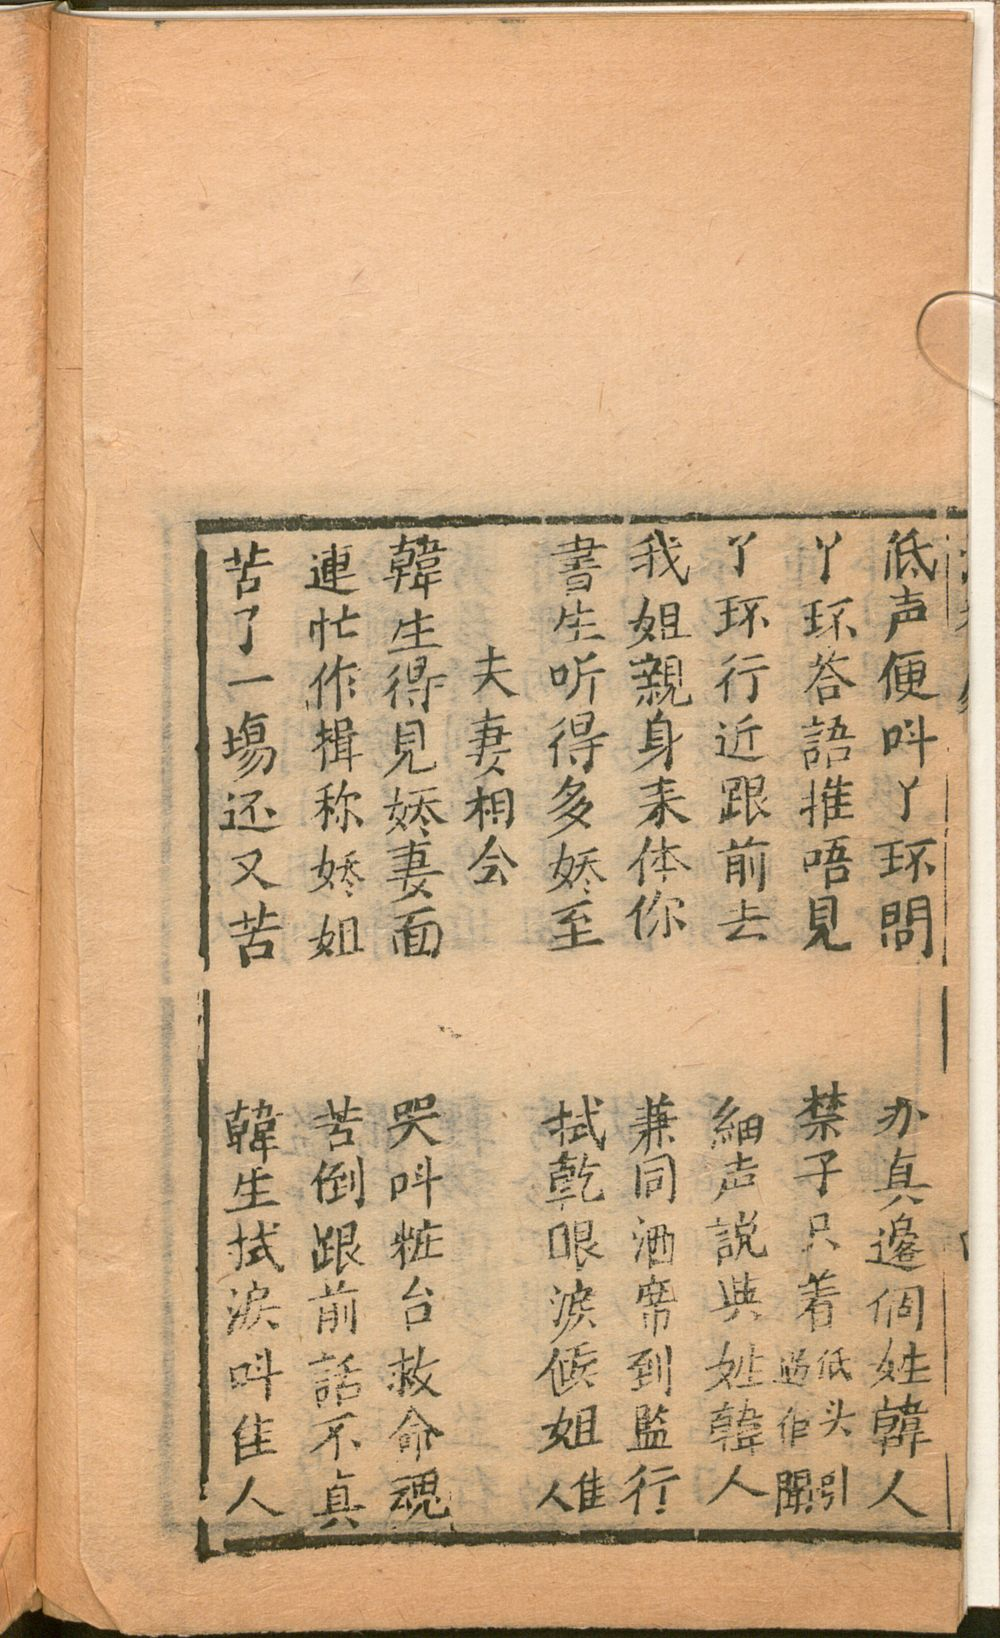 低声便呌丫环問　办真邊個姓韓人
丫环答語推唔見　禁子只着低头引過作聞
丫环行近跟前去　細声説与姓韓人
我姐親身来体你　兼同酒席到監行
書生听得多娇至　拭乾眼淚候姐隹人
夫妻相会
韓生得見娇妻面　哭呌粧台救命魂
連忙作揖称娇姐　苦倒跟前話不真
苦了一場还又苦　韓生拭淚呌隹人